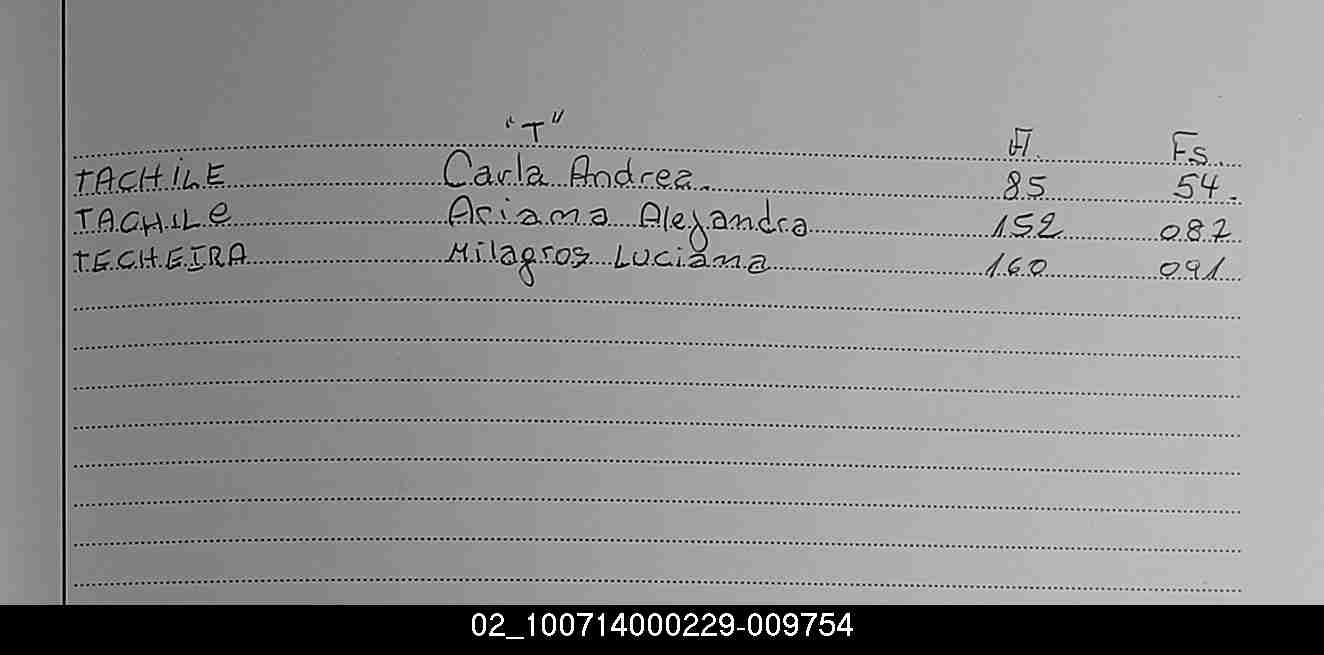 "T" A. Fs.
TACHILE Carla Andrea. 85 54.
TACHILe Ariana Alejandra 152 087
TECHEIRA Milagros Luciana 160 091
02_100714000229-009754